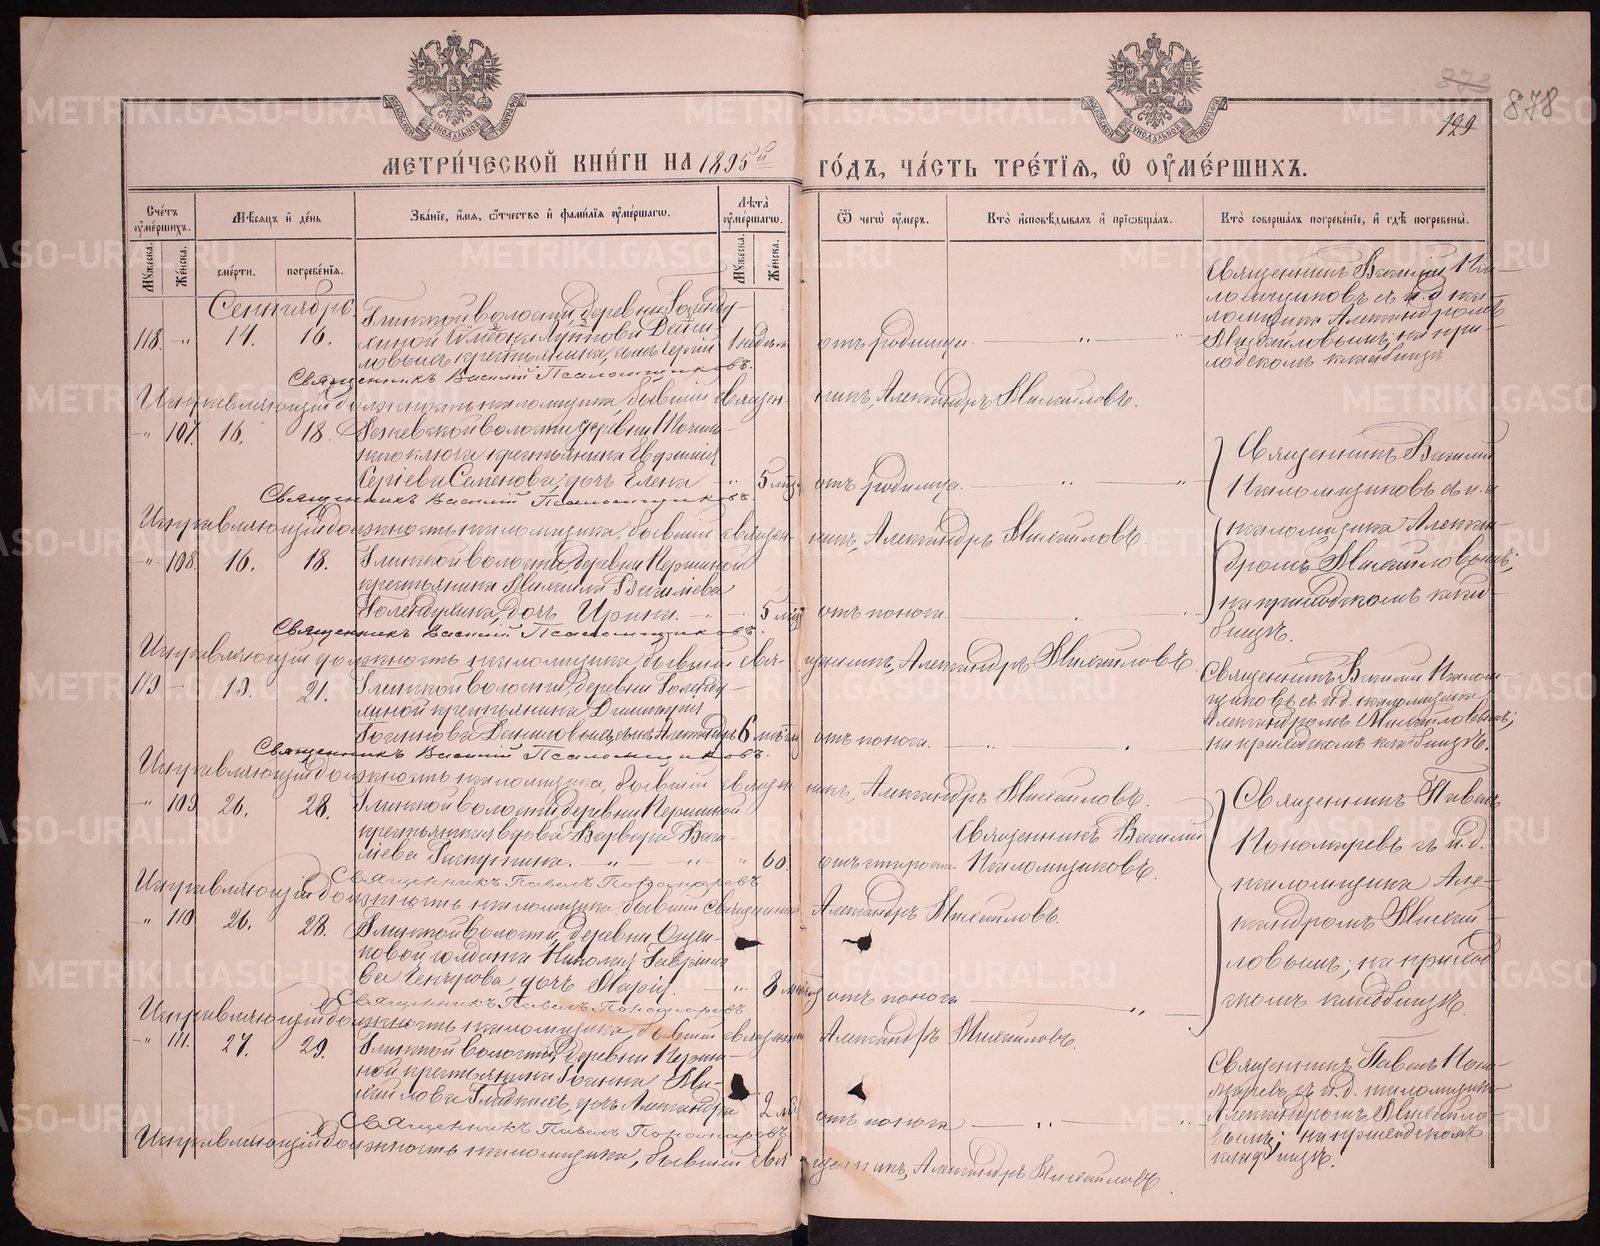 873
878
129
МЕТРИ́ЧЕСКОЙ КНИ́ГИ НА 1895й ГО́ДЪ, ЧА́СТЬ ТРЕ́ТІѦ, Ѡ ОУ҆МЕ́РШИХЪ.
Сче́тъ оу҆ме́ршихъ.
Мѣ́сяцъ и҆ де́нь
Зва́ніе, и҆́мя, ѻ҆́тчество и҆ фами́лія оу҆ме́ршагѡ.
Лѣ́та оу҆ме́ршагѡ.
Ѿ чегѡ̀ оу҆́меръ.
Кто̀ и҆сповѣ́дывалъ и҆ прїѡбща́лъ.
Кто̀ соверша́лъ погребе́ніе, и҆ гдѣ̀ погребены̀.
Мꙋ́жеска.
Же́нска.
сме́рти.
погребе́нія.
Мꙋ́жеска.
Же́нска.
Сентябрь
118. -"- 14. 16.
Глинской волости, деревни Голенду-
хиной
крестьянина, сынъ Сергій
1 недѣли
отъ родимца.
Священникъ Василій Пса-
ломщиковъ съ и.д. пса-
ломщика Александромъ
Михайловымъ; на при-
ходскомъ кладбищѣ
Священникъ Василій Псаломщиковъ.
Исправляющій должность псаломщика, бывшій священ-
никъ, Александръ Михайловъ.
-"- 107. 16. 18.
Режевской волости деревни
ключа крестьянина
Сергіева Семенова, дочь Елена
5 мѣс
отъ родимца.
Священникъ Василій
Псаломщиковъ съ и.д.
псаломщика Алексан-
дромъ Михайловымъ;
на приходскомъ клад-
бищѣ.
Священникъ Василій Псаломщиковъ.
Исправляющій должность псаломщика, бывшій священ-
никъ, Александръ Михайловъ
-"- 108. 16. 18.
Глинской волости, деревни Першиной
крестьянина Михаила Василіева
Голендухина, дочь Ирина.
5 мѣс
отъ поноса.
Священникъ Василій Псаломщиковъ.
Исправляющій должность псаломщика, бывшій свя-
щенникъ, Александръ Михайловъ
119 - 19. 21.
Глинской волости, деревни Голенду-
хиной крестьянина Димитрія
Іоаннова Даниловыхъ, сынъ Александръ
6 мѣсяц
отъ поноса.
Священникъ Василій Псалом-
щиковъ съ и.д. псаломщика
Александромъ Михайловымъ;
на приходскомъ кладбищѣ.
Священникъ Василій Псаломщиковъ.
Исправляющій должность псаломщика, бывшій священ
никъ, Александръ Михайловъ.
-"- 109 26. 28.
Глинской волости деревни Першиной
крестьянская вдова Варвара Васи-
ліева
60.
отъ старости
Священникъ Василій
Псаломщиковъ.
Священникъ Павелъ
Пономаревъ съ и.д.
псаломщика Але-
ксандромъ Михай-
ловымъ; на приход
скомъ кладбищѣ.
Священникъ Павелъ Пономаревъ
Исправляющій должность псаломщика бывшій священникъ
Александръ Михайловъ.
-"- 110 26. 28.
Глинской волости, деревни Ощеп-
ковой солдата Николая Гавріило-
ва дочь Марія.
8 мѣсяцев
отъ поноса
Священникъ Павелъ Пономаревъ
Исправляющій должность псаломщика, бывшій священникъ
Александръ Михайловъ.
-"- 111. 27. 29.
Глинской волости, деревни Перши-
ной крестьянина Іоанна Ми-
хайлова Гладкихъ, дочь Александра
2 мѣс
отъ поноса
Священникъ Павелъ Поно-
маревъ съ и.д. псаломщика
Александромъ Михайло-
вымъ; на приходскомъ
кладбищѣ.
Священникъ Павелъ Пономаревъ
Исправляющій должность псаломщика, бывшій свя
щенникъ, Александръ Михайловъ
METRIKI.GASO-URAL.RU